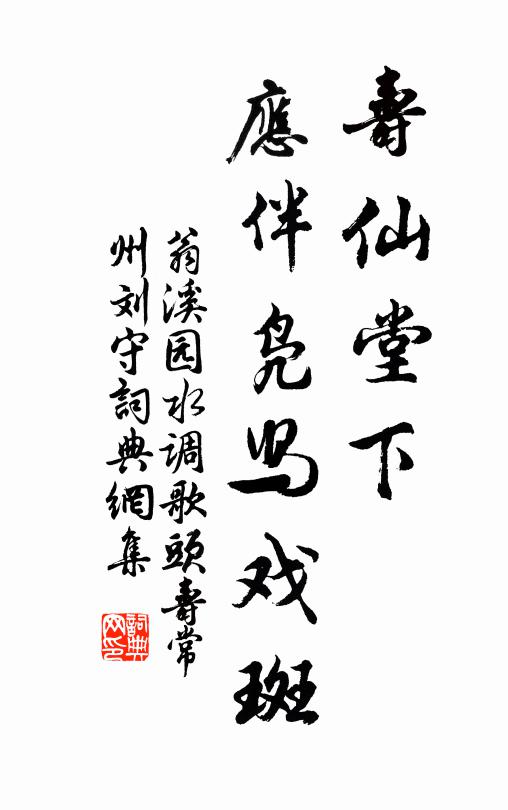 壽仙堂下
應伴凫舄戏斑
翁溪园水调歌頭壽常
州刘守詞典網集
詞典网印